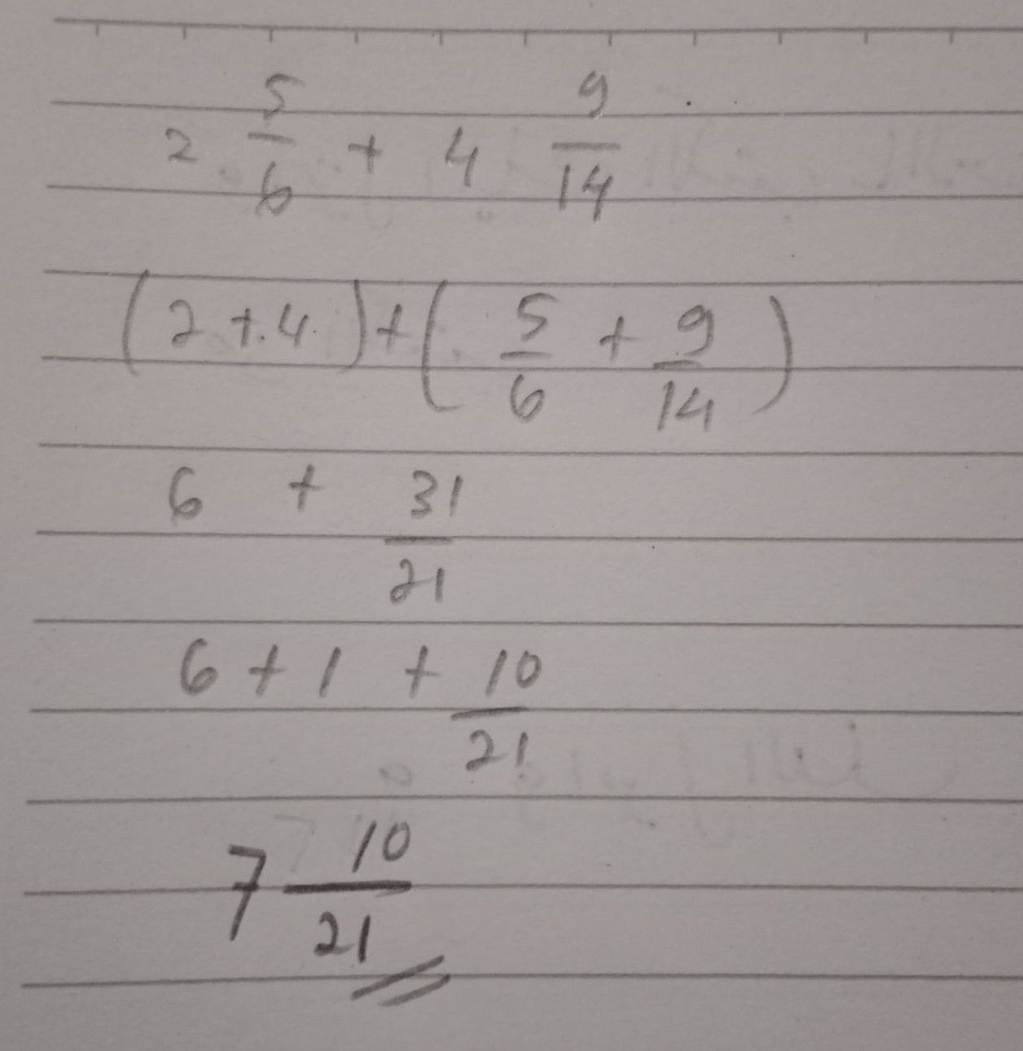 2 5/6 + 4 9/14
(2 + 4) + (5/6 + 9/14)
6 + 31/21
6 + 1 + 10/21
7 10/21